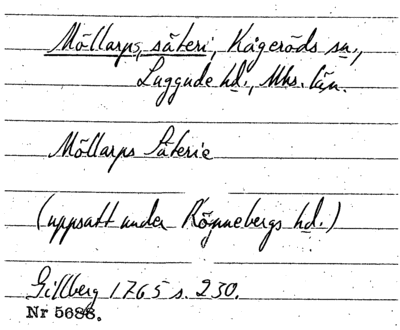 Möllarps säteri, Kågeröds sn.,
Luggude hd., Mhs. län.
Möllarps Säterie
(uppsatt under Rönnebergs hd.)
Gillberg 1765 s. 230.
Nr 5688.